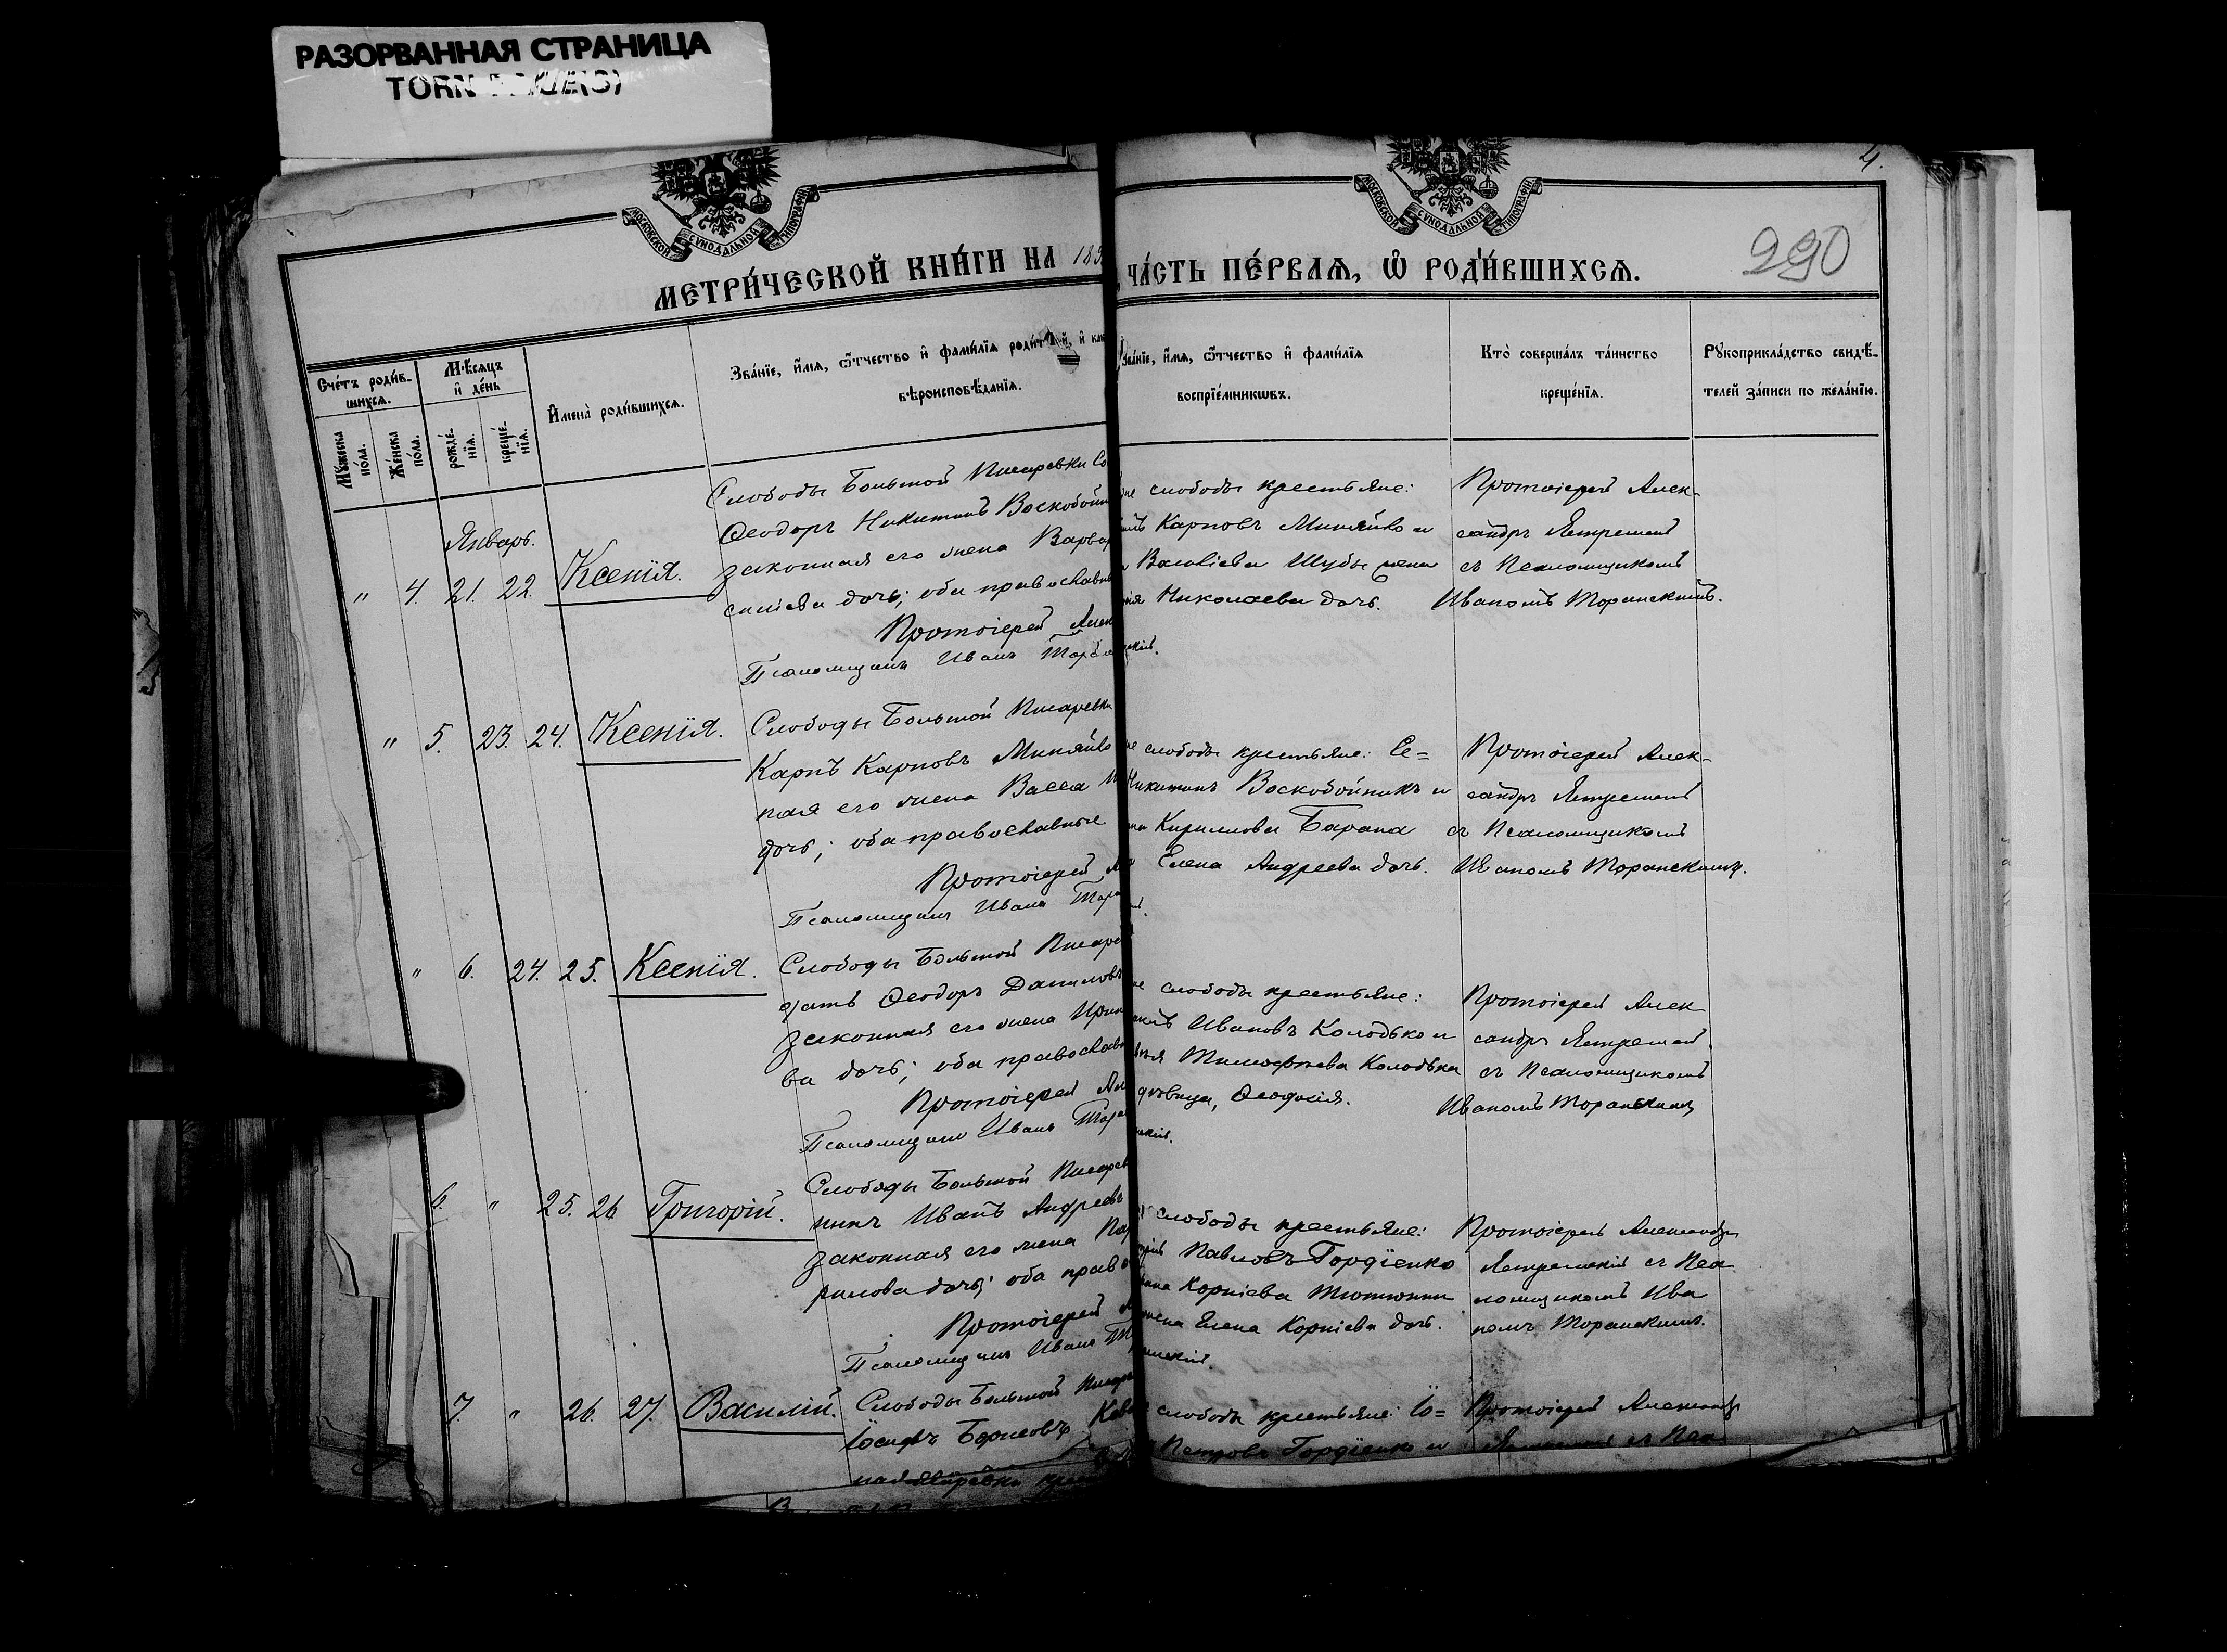 РАЗОРВАННАЯ СТРАНИЦА
TORN
4.
МОСКОВСКОЙ СѴНОДАЛЬНОЙ ТИПОГРАФІИ
МОСКОВСКОЙ СѴНОДАЛЬНОЙ ТИПОГРАФІИ
МЕТРИ́ЧЕСКОЙ КНИ́ГИ НА 189
ЧА́СТЬ ПЕ́РВАЯ, Ѡ РОДИ́ВШИХСѦ.
290
Сче́тъ роди́в-
шихсѧ.
Мꙋжеска по́ла.
Же́нска по́ла.
Мѣ́сяцъ
и де́нь
рожде́-
нїѧ.
креще́-
нїѧ.
И҆мена̀ роди́вшихсѧ.
Зва́нїе, и҆́мѧ, ѻ҆́тчество и҆ фами́лїѧ роди́т й, и҆ как
вѣроисповѣ́данїѧ.
Зва́нїе, и҆́мѧ, ѻ҆́тчество и҆ фами́лїѧ
воспрїе́мникѡвъ.
Кто̀ соверша́лъ та́инство
креще́нїѧ.
Рꙋкоприкла́дство свидѣ́-
телей за́писи по жела́нїю.
Январь.
" 4. 21. 22. Ксенія.
Слободы Большой Писаревки Со
Ѳеодоръ Никитинъ Воскобойн
законная его жена Варвар
сильева дочь; оба православн
Протоіерей Алек
Псаломщикъ Иванъ Торан
слободы крестьяне:
Карповъ Миняйло и
Василіева Шубы жена
Николаева дочь.
Протоіерей Алек-
сандръ Ястремскій
съ Псаломщикомъ
Иваномъ Торанскимъ.
" 5. 23. 24. Ксенія.
Слободы Большой Писаревки
Карпъ Карповъ Миняйло
ная его жена Васса
дочь; оба православные
Протоіерей
Псаломщикъ Иванъ Тора
слободы крестьяне: Се=
Никитинъ Воскобойникъ и
Кириллова Барана
Елена Андреева дочь.
Протоіерей Алек-
сандръ Ястремскій
съ Псаломщикомъ
Иваномъ Торанскимъ.
" 6. 24. 25. Ксенія.
Слободы Большой Писаре
датъ Ѳеодоръ Даниловъ
законная его жена Ирин
ва дочь; оба православн
Протоіерей Ал
Псаломщикъ Иванъ Тора
слободы крестьяне:
Ивановъ Колодько и
Тимоѳеева Колодька
дѣвица, Ѳеодосія.
Протоіерей Алек
сандръ Ястремскій
съ Псаломщикомъ
Иваномъ Торанскимъ
6. " 25. 26 Григорій.
Слободы Большой Писарев
нинъ Иванъ Андреевъ
законная его жена
рилова дочь; оба право
Протоіерей
Псаломщикъ Иванъ
слободы крестьяне:
Павловъ Гордіенко
Корніева Тютюнни
жена Елена Корніева дочь.
Протоіерей Александръ
Ястремскій съ Пса
ломщикомъ Ива
номъ Торанскимъ.
7. " 26. 27. Василій.
Слободы Большой Писаре
Іосифъ Борисовъ
слободы крестьяне: Іо=
Петровъ Гордіенко и
Протоіерей Александръ
съ Пса